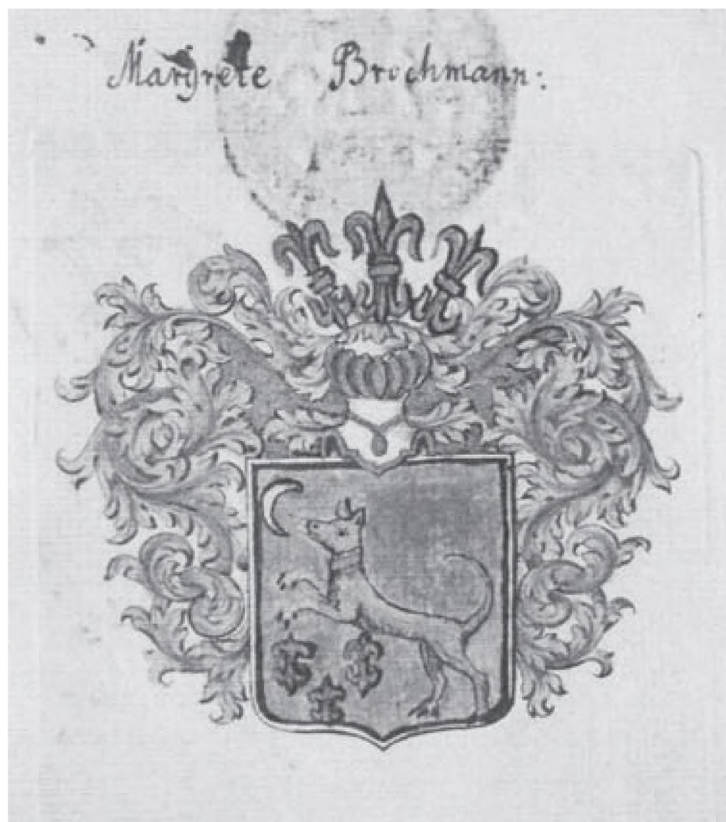 Margrete Brochmann: